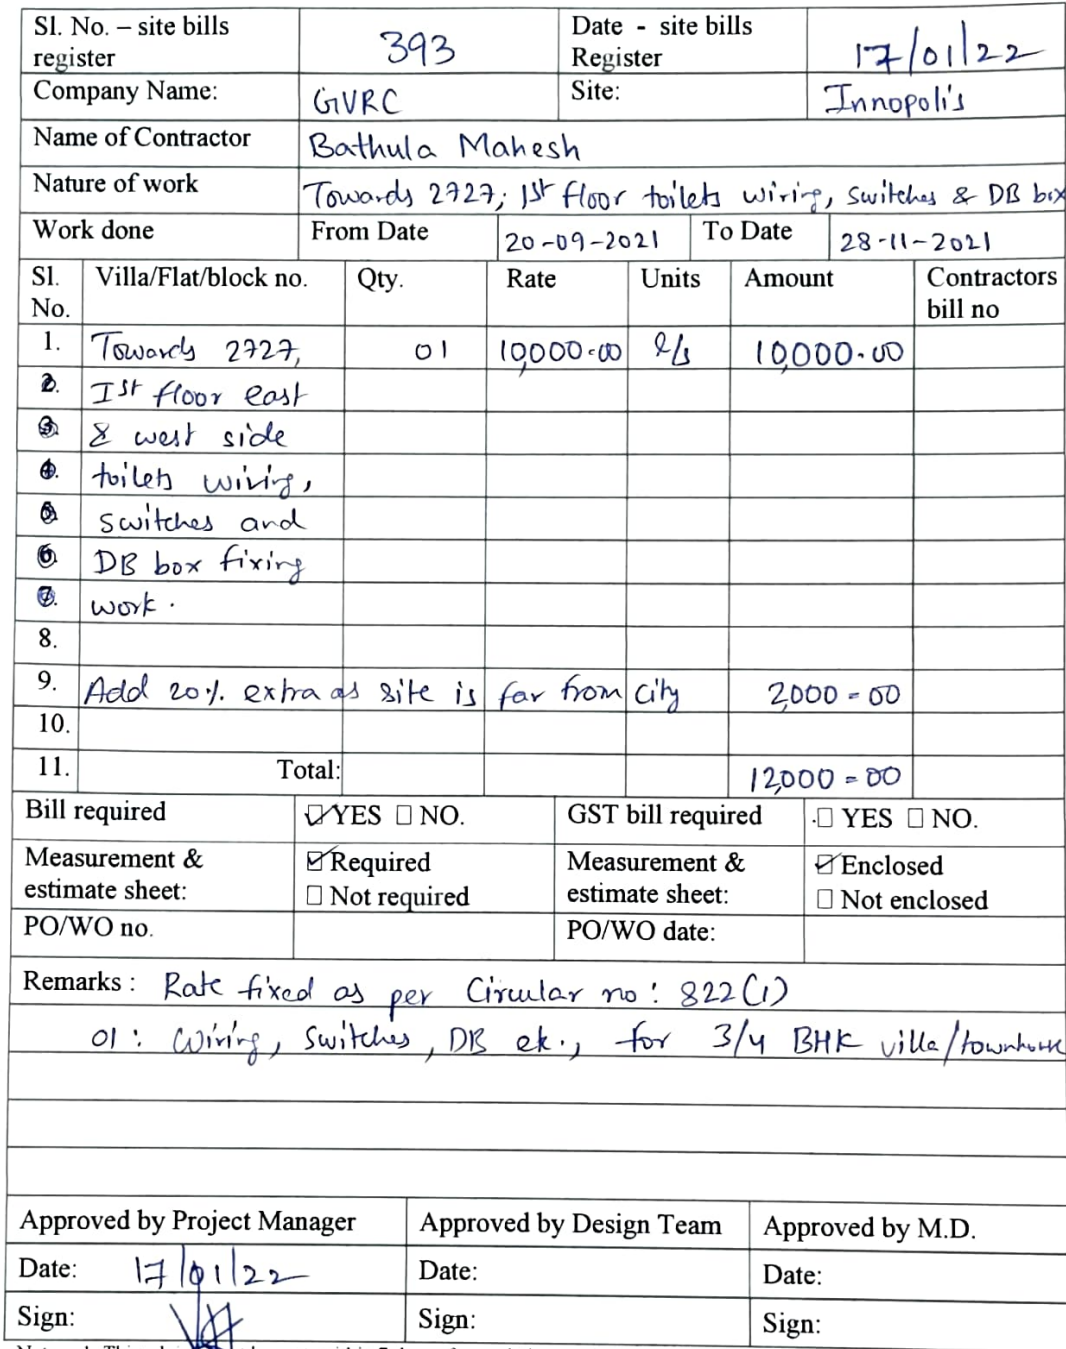 Sl. No. – site bills register 393 Date - site bills Register 17/01/22
Company Name: GVRC Site: Innopolis
Name of Contractor Bathula Mahesh
Nature of work Towards 2727; 1st floor toilets wiring, switches & DB box
Work done From Date 20-09-2021 To Date 28-11-2021
Sl. No. Villa/Flat/block no. Qty. Rate Units Amount Contractors bill no
1. Towards 2727, 01 10,000.00 l/s 10,000.00
2. Ist floor east
3. & west side
4. toilets wiring,
5. switches and
6. DB box fixing
7. work.
8.
9. Add 20% extra as site is far from city 2,000=00
10.
11. Total: 12,000=00
Bill required ☑YES ☐ NO. GST bill required ☐ YES ☐ NO.
Measurement & estimate sheet: ☑Required ☐ Not required Measurement & estimate sheet: ☑Enclosed ☐ Not enclosed
PO/WO no. PO/WO date:
Remarks : Rate fixed as per Circular no: 822(1)
01: Wiring, switches, DB etc., for 3/4 BHK villa/townhouse
Approved by Project Manager Approved by Design Team Approved by M.D.
Date: 17/01/22 Date: Date:
Sign: Sign: Sign: